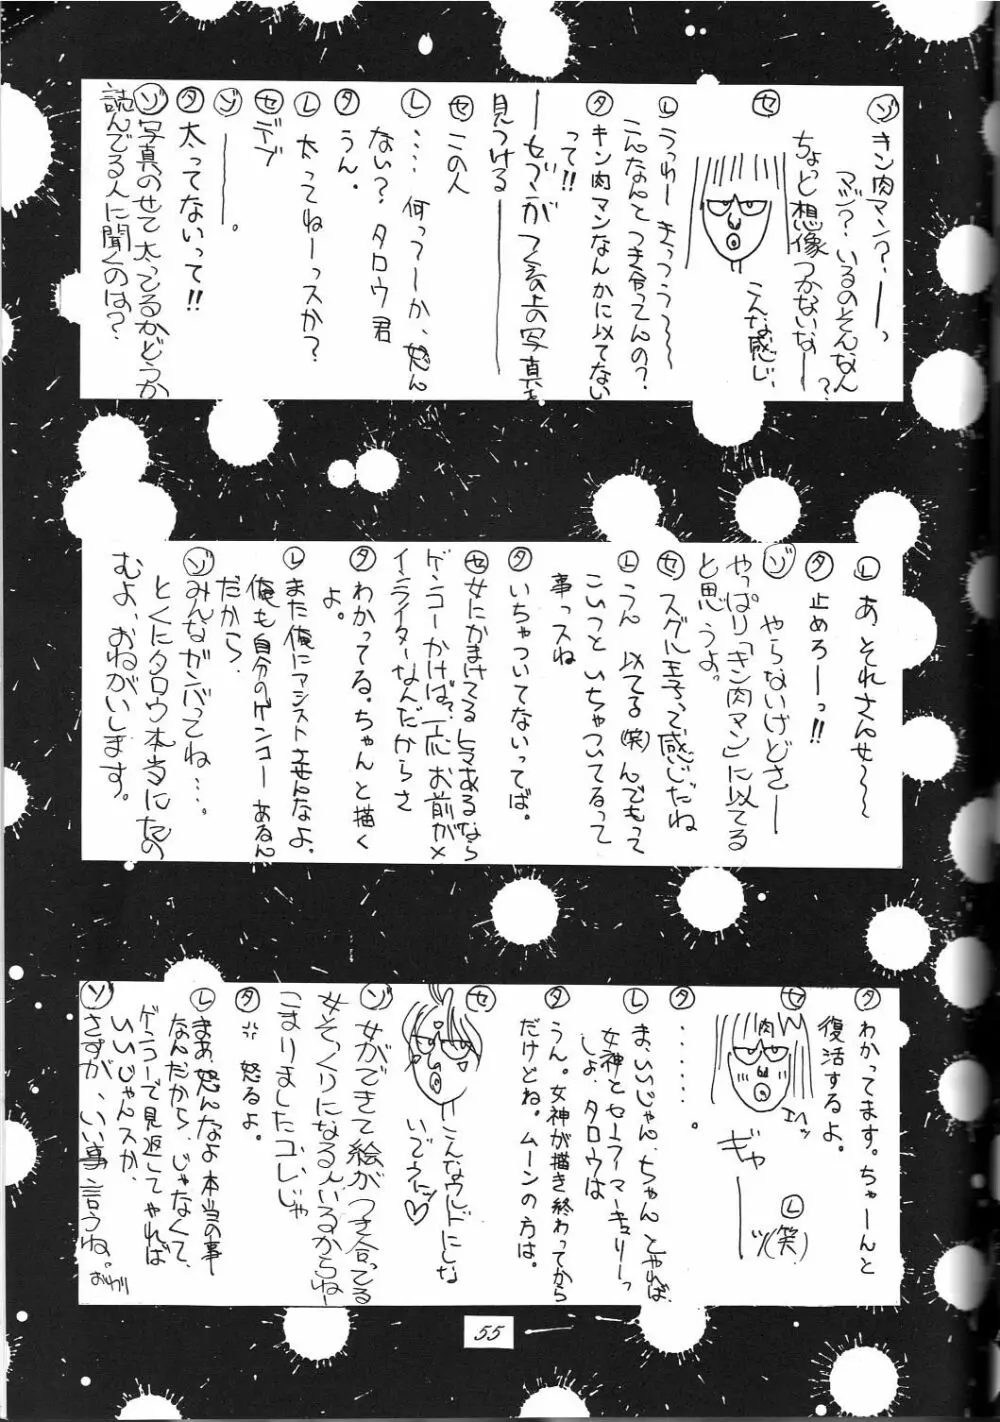 ゾ キン肉マン？・──っ
マジ？・いるのそんなん
ちょっと想像つかないなー？
セ
こんな感じ、
レ うっわー きっつうう〜〜
こんなんとつき合ってんの？
タ キン肉マンなんかに似てない
って!!
──セブがてくるの上の写真を
見つける──
セ この人
レ ‥‥何ってーか、怒ん
ない？タロウ君
タ うん。
レ 太ってねーっスか？
セ デブ
ゾ ──。
タ 太ってないって!!
ゾ 写真のせて太ってるかどうか
読んでる人に聞くのは？
レ あ それさんせ〜〜
タ 止めろーっ!!
ゾ やらないけどさー
やっぱり「キン肉マン」に似てる
と思うよ。
セ スグル王子って感じだね
レ うん 似てる(笑)んでもって
こいつと いちゃついてるって
事っスね
タ いちゃついてないってば。
セ 女にかまけてるヒマあるなら
ゲンコーかけば？一応お前がメ
インライターなんだからさ
タ わかってる。ちゃんと描く
よ。
レ また俺にアシストさせんなよ。
俺も自分のゲンコーあるん
だから．
ゾ みんなガンバってね‥‥。
とくにタロウ本当にたの
むよ、おねがいします。
タ わかってます。ちゃーんと
復活するよ。
セ
肉
エヘッ
ギャーーッ
レ (笑)
タ ‥‥‥。
レ ま、いいじゃん、ちゃん とやれば、
女神とセーラーマーキュリーっ
しょ．タロウは
タ うん。女神が描き終わってから
だけどね。ムーンの方は。
セ
こんなウルドにしな
いでネッ♡
ゾ 女ができて絵がつき合ってる
女そっくりになる人いるからねー
こまりましたコレじゃ
タ 怒るよ。
レ まあ、怒んなよ 本当の事
なんだから、じゃなくて、
ゲンコーで見返してやれば
いいじゃんスか、
ゾ さすが、いい事言うね。おわり
55